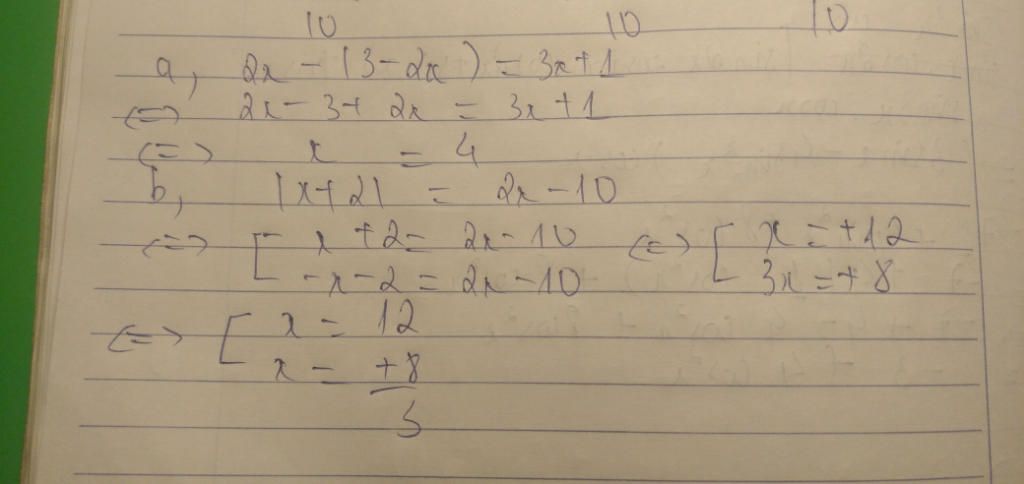 10 10 10
a, 2x - (3 - 2x) = 3x + 1
<=> 2x - 3 + 2x = 3x + 1
<=> x = 4
b, |x + 2| = 2x - 10
<=> [ x + 2 = 2x - 10 <=> [ x = +12
-x - 2 = 2x - 10 3x = +8
<=> [ x = 12
x = +8/3